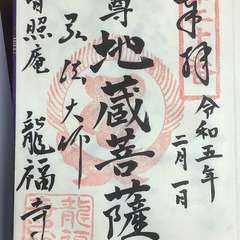 奉拝
令和五年
二月一日
尊
地蔵菩薩
弘法大師
照庵
龍福寺